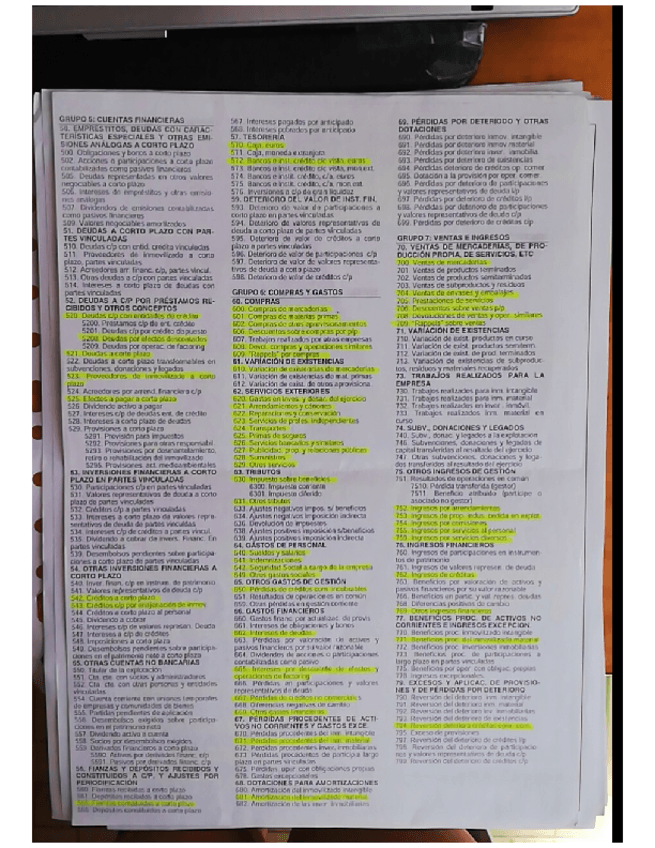 GRUPO 5: CUENTAS FINANCIERAS
50. EMPRÉSTITOS, DEUDAS CON CARAC-
TERÍSTICAS ESPECIALES Y OTRAS EMI-
SIONES ANÁLOGAS A CORTO PLAZO
500. Obligaciones y bonos a corto plazo
502. Acciones o participaciones a corto plazo
contabilizadas como pasivos financieros
505. Deudas representadas en otros valores
negociables a corto plazo
506. Intereses de empréstitos y otras emisio-
nes análogas
507. Dividendos de emisiones contabilizadas
como pasivos financieros
509. Valores negociables amortizados
51. DEUDAS A CORTO PLAZO CON PAR-
TES VINCULADAS
510. Deudas c/p con entid. credito vinculadas
511. Proveedores de inmovilizado a corto
plazo, partes vinculadas
512. Acreedores arr. financ. c/p, partes vincul.
513. Otras deudas a c/p con partes vinculadas
514. Intereses a corto plazo de deudas con
partes vinculadas
52. DEUDAS A C/P POR PRÉSTAMOS RE-
CIBIDOS Y OTROS CONCEPTOS
520. Deudas c/p con entidades de crédito
5200. Préstamos c/p de ent. crédito
5201. Deudas c/p por crédito dispuesto
5208. Deudas por efectos descontados
5209. Deudas por operac. de factoring
521. Deudas a corto plazo
522. Deudas a corto plazo transformables en
subvenciones, donaciones y legados
523. Proveedores de inmovilizado a corto
plazo
524. Acreedores por arrend. financiero c/p
525. Efectos a pagar a corto plazo
526. Dividendo activo a pagar
527. Intereses c/p de deudas ent. de crédito
528. Intereses a corto plazo de deudas
529. Provisiones a corto plazo
5291. Provisión para impuestos
5292. Provisiones para otras responsabil.
5293. Provisión por desmantelamiento,
retiro o rehabilitación del inmovilizado
5295. Provisiones act. medioambientales
53. INVERSIONES FINANCIERAS A CORTO
PLAZO EN PARTES VINCULADAS
530. Participaciones c/p en partes vinculadas
531. Valores representativos de deuda a corto
plazo de partes vinculadas
532. Créditos c/p a partes vinculadas
533. Intereses a corto plazo de valores repre-
sentativos de deuda de partes vinculadas
534. Intereses c/p de créditos a partes vincul.
535. Dividendo a cobrar de invers. Financ. En
partes vinculadas
539. Desembolsos pendientes sobre participa-
ciones a corto plazo de partes vinculadas
54. OTRAS INVERSIONES FINANCIERAS A
CORTO PLAZO
540. Inver. finan. c/p en instrum. de patrimonio
541. Valores representativos de deuda c/p
542. Créditos a corto plazo
543. Créditos c/p por enajenación de inmov.
544. Créditos a corto plazo al personal
545. Dividendo a cobrar
546. Intereses c/p de valores represen. Deuda
547. Intereses a c/p de créditos
548. Imposiciones a corto plazo
549. Desembolsos pendientes sobre participa-
ciones en el patrimonio neto a corto plazo
55. OTRAS CUENTAS NO BANCARIAS
550. Titular de la explotación
551. Cta. cte. con socios y administradores
552. Cta. cte. con otras personas y entidades
vinculadas
554. Cuenta corriente con uniones temporales
de empresas y comunidades de bienes
555. Partidas pendientes de aplicación
556. Desembolsos exigidos sobre participa-
ciones en el patrimonio neto
557. Dividendo activo a cuenta
558. Socios por desembolsos exigidos
559. Derivados financieros a corto plazo
56. FIANZAS Y DEPÓSITOS RECIBIDOS Y
CONSTITUIDOS A C/P, Y AJUSTES POR
PERIODIFICACIÓN
560. Fianzas recibidas a corto plazo
561. Depósitos recibidos a corto plazo
565. Fianzas constituidas a corto plazo
566. Depósitos constituidos a corto plazo
567. Intereses pagados por anticipado
568. Intereses cobrados por anticipado
57. TESORERÍA
570. Caja, euros
571. Caja, moneda extranjera
572. Bancos e inst. crédito c/c vista, euros
573. Bancos e inst. crédito c/c vista, mon.ext
574. Bancos e instit. crédito, c/a, euros
575. Bancos e instit. crédito, c/a, mon.ext
576. Inversiones a c/p de gran liquidez
59. DETERIORO DEL VALOR DE INST. FIN.
593. Deterioro de valor de participaciones a
corto plazo en partes vinculadas
594. Deterioro de valores representativos de
deuda a corto plazo de partes vinculadas
595. Deterioro de valor de créditos a corto
plazo a partes vinculadas
596. Deterioro de valor de participaciones c/p
597. Deterioro de valor de valores representa-
tivos de deuda a corto plazo
598. Deterioro de valor de créditos c/p
GRUPO 6: COMPRAS Y GASTOS
60. COMPRAS
600. Compras de mercaderías
601. Compras de materias primas
602. Compras de otros aprovisionamientos
606. Descuentos sobre compras por p/p
607. Trabajos realizados por otras empresas
608. Devol. compras y operaciones similares
609. "Rappels" por compras
61. VARIACIÓN DE EXISTENCIAS
610. Variación de existencias de mercaderías
611. Variación de existencias de mat. primas
612. Variación de exist. de otros aprovisiona.
62. SERVICIOS EXTERIORES
620. Gastos en invest. y desar. del ejercicio
621. Arrendamientos y cánones
622. Reparaciones y conservación
623. Servicios de profes. independientes
624. Transportes
625. Primas de seguros
626. Servicios bancarios y similares
627. Publicidad, prop. y relaciones públicas
628. Suministros
629. Otros servicios
63. TRIBUTOS
630. Impuesto sobre beneficios
6300. Impuesto corriente
6301. Impuesto diferido
631. Otros tributos
633. Ajustes negativos impos. s/ beneficios
634. Ajustes negativos imposición indirecta
636. Devolución de impuestos
638. Ajustes positivos imposición s/beneficios
639. Ajustes positivos imposición indirecta
64. GASTOS DE PERSONAL
640. Sueldos y salarios
641. Indemnizaciones
642. Seguridad Social a cargo de la empresa
649. Otros gastos sociales
65. OTROS GASTOS DE GESTIÓN
650. Pérdidas de créditos com. incobrables
651. Resultados de operaciones en común
659. Otras pérdidas en gestión corriente
66. GASTOS FINANCIEROS
660. Gastos financ. por actualizac. de provis.
661. Intereses de obligaciones y bonos
662. Intereses de deudas
663. Pérdidas por valoración de activos y
pasivos financieros por su valor razonable
664. Dividendos de acciones o participaciones
contabilizadas como pasivo
665. Intereses por descuento de efectos y
operaciones de factoring
666. Pérdidas en participaciones y valores
representativos de deuda
667. Pérdidas de créditos no comerciales
668. Diferencias negativas de cambio
669. Otros gastos financieros
67. PÉRDIDAS PROCEDENTES DE ACTI-
VOS NO CORRIENTES Y GASTOS EXCE.
670. Pérdidas procedentes del inm. intangible
671. Pérdidas procedentes del inm. material
672. Pérdidas procedentes inver. inmobiliarias
673. Pérdidas procedentes de participa largo
plazo en partes vinculadas
675. Pérdidas oper. con obligaciones propias
678. Gastos excepcionales
68. DOTACIONES PARA AMORTIZACIONES
680. Amortización del inmovilizado intangible
681. Amortización del inmovilizado material
682. Amortización de las inver. inmobiliarias
69. PÉRDIDAS POR DETERIODO Y OTRAS
DOTACIONES
690. Pérdidas por deterioro inmov. intangible
691. Pérdidas por deterioro inmov. material
692. Pérdidas por deterioro inver. inmobil.
693. Pérdidas por deterioro de existencias
694. Pérdidas deterioro de créditos op. comer
695. Dotación a la provisión por oper. comer.
696. Pérdidas por deterioro de participaciones
y valores representativos de deuda l/p
697. Pérdidas por deterioro de créditos l/p
698. Pérdidas por deterioro de participaciones
y valores representativos de deuda c/p
699. Pérdidas por deterioro de créditos c/p
GRUPO 7: VENTAS E INGRESOS
70. VENTAS DE MERCADERÍAS, DE PRO-
DUCCIÓN PROPIA, DE SERVICIOS, ETC
700. Ventas de mercaderías
701. Ventas de productos terminados
702. Ventas de productos semiterminados
703. Ventas de subproductos y residuos
704. Ventas de envases y embalajes
705. Prestaciones de servicios
706. Descuentos sobre ventas p/p
708. Devoluciones de ventas y oper. similares
709. "Rappels" sobre ventas
71. VARIACIÓN DE EXISTENCIAS
710. Variación de exist. productos en curso
711. Variación de exist. productos semiterm.
712. Variación de exist. de prod. terminados
713. Variación de existencias de subproduc-
tos, residuos y materiales recuperados
73. TRABAJOS REALIZADOS PARA LA
EMPRESA
730. Trabajos realizados para inm. intangible
731. Trabajos realizados para inm. material
732. Trabajos realizados en inver. inmobil.
733. Trabajos realizados inm. material en
curso
74. SUBV., DONACIONES Y LEGADOS
740. Subv., donac. y legados a la explotación
746. Subvenciones, donaciones y legados de
capital transferidos al resultado del ejercicio
747. Otras subvenciones, donaciones y lega-
dos transferidos al resultado del ejercicio
75. OTROS INGRESOS DE GESTIÓN
751. Resultados de operaciones en común
7510. Pérdida transferida (gestor)
7511. Beneficio atribuido (partícipe o
asociado no gestor)
752. Ingresos por arrendamientos
753. Ingresos de prop. indus. cedida en explot.
754. Ingresos por comisiones
755. Ingresos por servicios al personal
759. Ingresos por servicios diversos
76. INGRESOS FINANCIEROS
760. Ingresos de participaciones en instrumen-
tos de patrimonio
761. Ingresos de valores represent. de deuda
762. Ingresos de créditos
763. Beneficios por valoración de activos y
pasivos financieros por su valor razonable
766. Beneficios en partic. y val. repres. deudas
768. Diferencias positivas de cambio
769. Otros ingresos financieros
77. BENEFICIOS PROC. DE ACTIVOS NO
CORRIENTES E INGRESOS EXCEPCION.
770. Beneficios proc. inmovilizado intangible
771. Beneficios proc. del inmovilizado material
772. Beneficios proc. inversiones inmobiliarias
773. Beneficios proc. de participaciones a
largo plazo en partes vinculadas
775. Beneficios por oper. con obligac. propias
778. Ingresos excepcionales
79. EXCESOS Y APLICAC. DE PROVISIO-
NES Y DE PÉRDIDAS POR DETERIORO
790. Reversión del deterioro inm. intangible
791. Reversión del deterioro inm. material
792. Reversión del deterioro inver. inmobiliarias
793. Reversión del deterioro de existencias
795. Exceso de provisiones
797. Reversión del deterioro de créditos l/p
799. Reversión del deterioro de créditos c/p